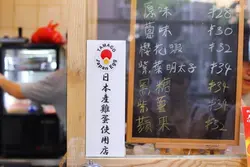 TAMAGO
JAPAN EGG
日本産雞蛋使用店
原味 $28
味 $30
櫻花蝦 $32
紫菜明太子 $34
黑糖 $34
紫薯 $34
蘋果 $34